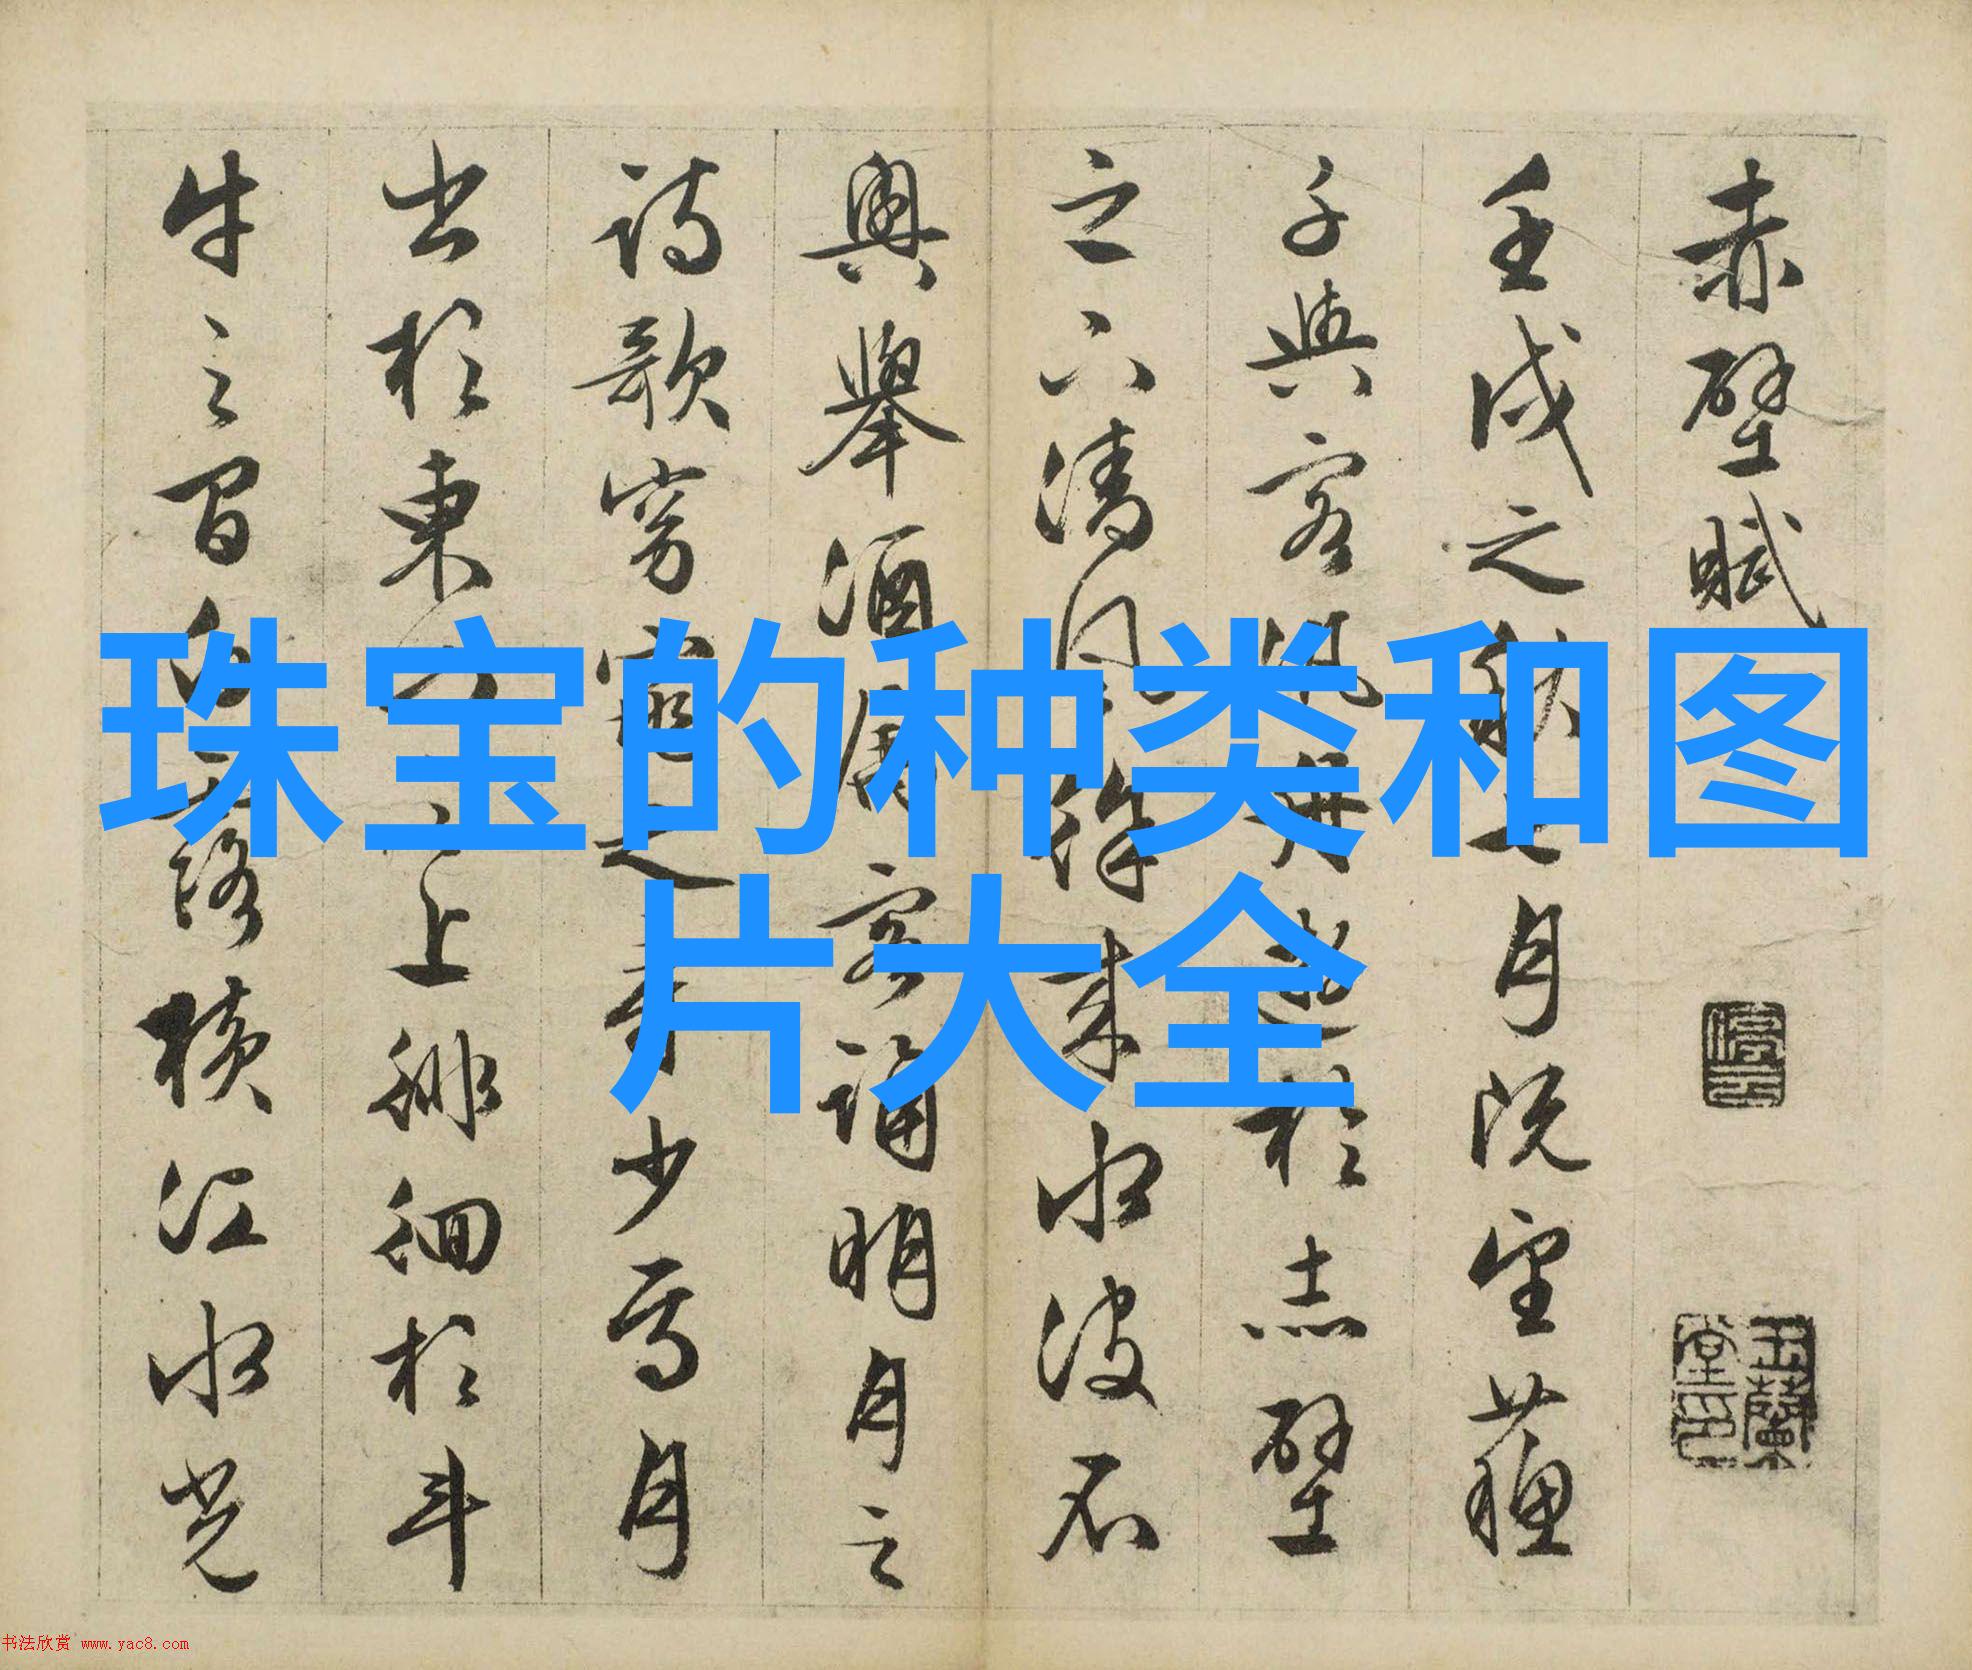 珠宝的种类和图
片大全
赤壁賦
壬戌之秋七月既望蘓
子與客汎舟遊於赤壁
之下清風徐來水波不
興舉酒屬客誦明月之
詩歌窈窕之章少焉月
出於東山之上徘徊於斗
牛之間白露橫江水光
停雲
玉蘭堂印
书法欣赏 www.yac8.com